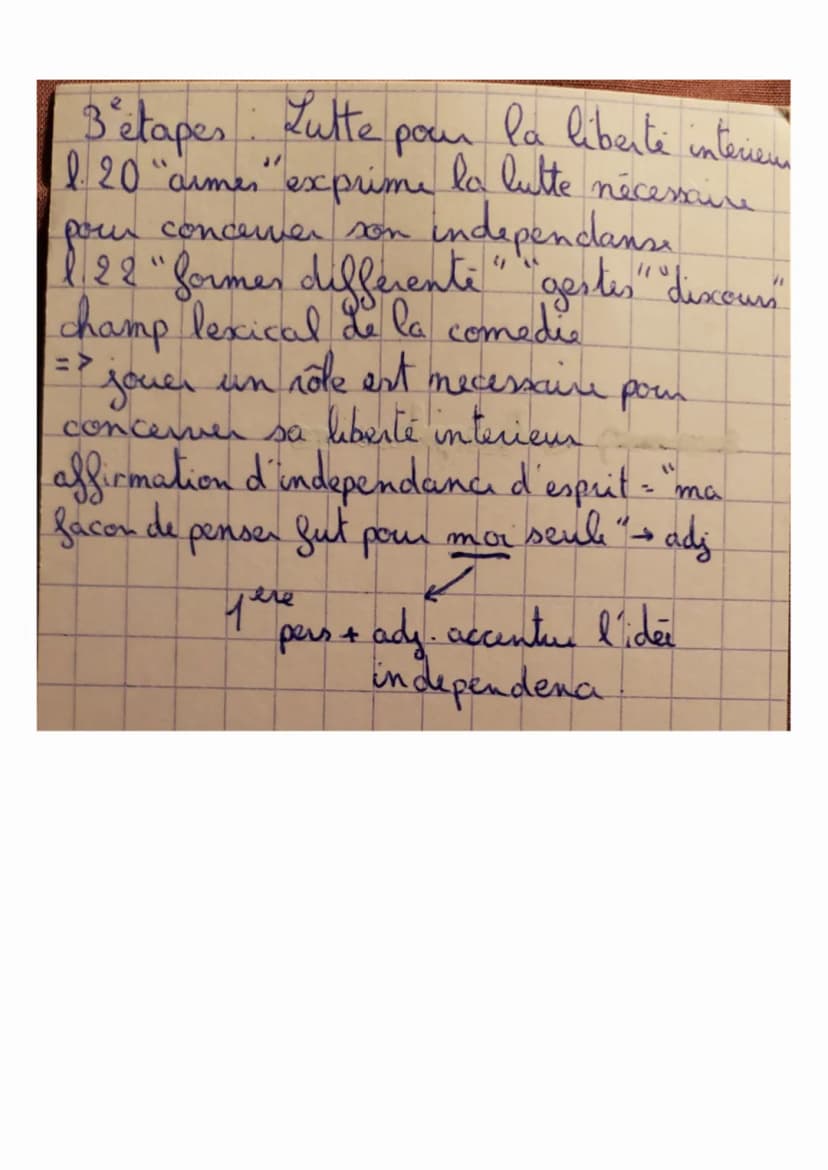 3e étapes : Lutte pour la liberté interieur
l.20 "armes" exprime la lutte nécessaire
pour concerver son independanse
l.22 "formes différente" "gestes" "discours"
champ lexical de la comedie
=> jouer un rôle est necessaire pour
concerver sa liberté interieur
affirmation d'independance d'esprit = "ma
facon de penser fut pour moi seule" → adj
1ère
pers + adj. accentue l'idée
independence.